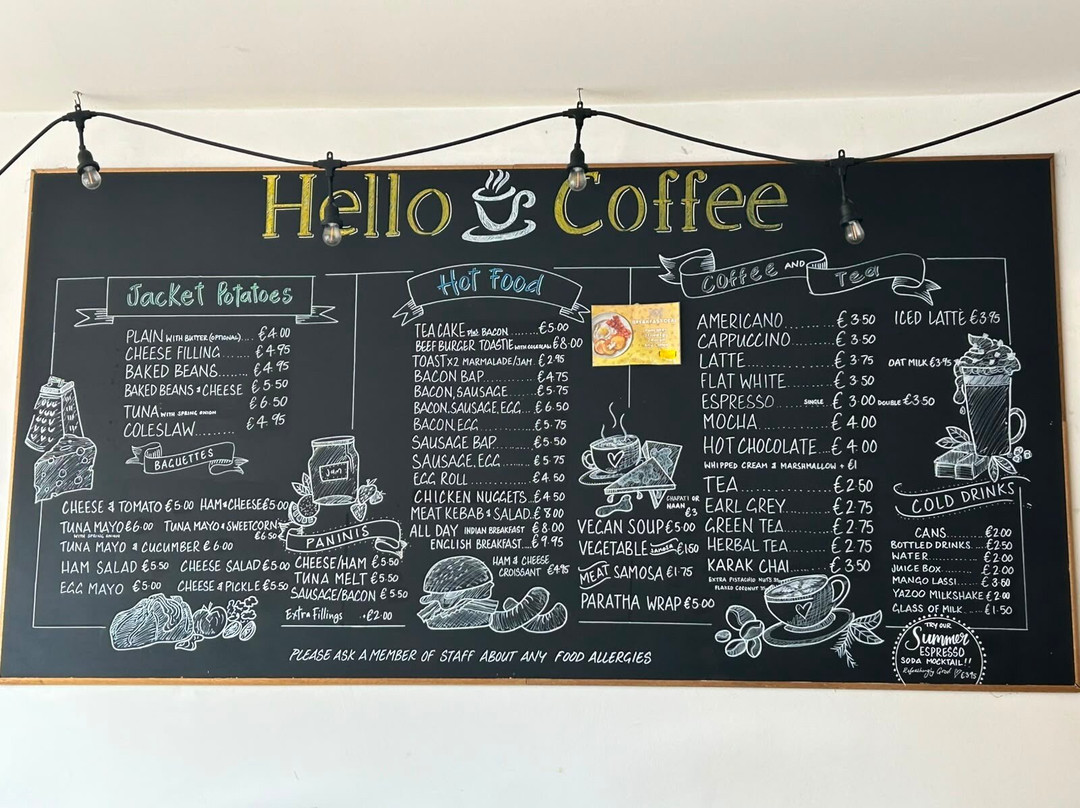 Hello Coffee
Jacket Potatoes
PLAIN WITH BUTTER (OPTIONAL).... €4.00
CHEESE FILLING....... €4.95
BAKED BEANS....... €4.95
BAKED BEANS & CHEESE €5.50
TUNA WITH SPRING ONION €6.50
COLESLAW......... €4.95
BAGUETTES
CHEESE & TOMATO €5.00 HAM & CHEESE €5.00
TUNA MAYO €6.00 TUNA MAYO & SWEETCORN
WITH SPRING ONION €6.50
TUNA MAYO & CUCUMBER €6.00
HAM SALAD €5.50 CHEESE SALAD €5.00
EGG MAYO €5.00 CHEESE & PICKLE €5.50
Jam
PANINIS
CHEESE/HAM €5.50
TUNA MELT €5.50
SAUSAGE/BACON €5.50
Extra Fillings ..€2.00
Hot Food
TEA CAKE BACON........ €5.00
BEEF BURGER TOASTIE WITH COLESLAW €8.00
TOAST X2 MARMALADE/JAM €2.95
BACON BAP........... €4.75
BACON, SAUSAGE...... €5.75
BACON, SAUSAGE, EGG... €6.50
BACON, EGG.......... €5.75
SAUSAGE BAP........ €5.50
SAUSAGE, EGG....... €5.75
EGG ROLL........... €4.50
CHICKEN NUGGETS...€4.50
MEAT KEBAB & SALAD..€8.00
ALL DAY INDIAN BREAKFAST €8.00
ENGLISH BREAKFAST....€9.95
HAM & CHEESE
CROISSANT €4.95
CHAPATI OR
NAAN
€3
VEGAN SOUP €5.00
VEGETABLE SAMOSA €1.50
MEAT SAMOSA €1.75
PARATHA WRAP €5.00
Coffee AND Tea
AMERICANO......... €3.50
CAPPUCCINO....... €3.50
LATTE............... €3.75
FLAT WHITE........ €3.50
ESPRESSO....... SINGLE €3.00 DOUBLE €3.50
MOCHA............. €4.00
HOT CHOCOLATE...€4.00
WHIPPED CREAM & MARSHMALLOW + €1
TEA.............. €2.50
EARL GREY....... €2.75
GREEN TEA....... €2.75
HERBAL TEA...... €2.75
KARAK CHAI..... €3.50
EXTRA PISTACHIO NUTS
FLAKED COCONUT
ICED LATTE €3.95
OAT MILK €3.95
COLD DRINKS
CANS......... €2.00
BOTTLED DRINKS....€2.50
WATER........... €2.00
JUICE BOX....... €2.00
MANGO LASSI..... €3.60
YAZOO MILKSHAKE €2.00
GLASS OF MILK.... €1.50
TRY OUR
Summer
ESPRESSO
SODA MOCKTAIL!!
Refreshingly Good €3.95
PLEASE ASK A MEMBER OF STAFF ABOUT ANY FOOD ALLERGIES